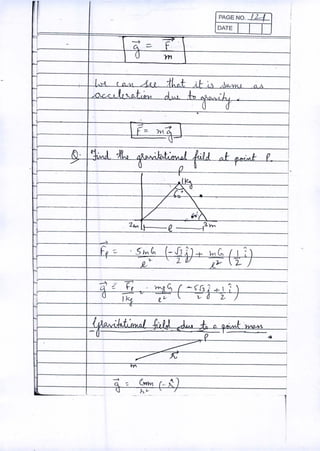 PAGE NO. 124
DATE
g⃗ = F⃗ / m
We can see that it is same as
acceleration due to gravity.
F⃗ = mg⃗
Q. Find the gravitational field at point P.
P
1kg
60
60°
2m
l
3m
F⃗p = 5mG/l² (-√3/2 ĵ) + mG/l² (1/2 î)
g⃗ = F⃗p/1kg = mG/l² (-5√3/2 ĵ + 1/2 î)
Gravitational field due to a point mass
P
r⃗
m
g⃗ = Gm/r² (-r̂)